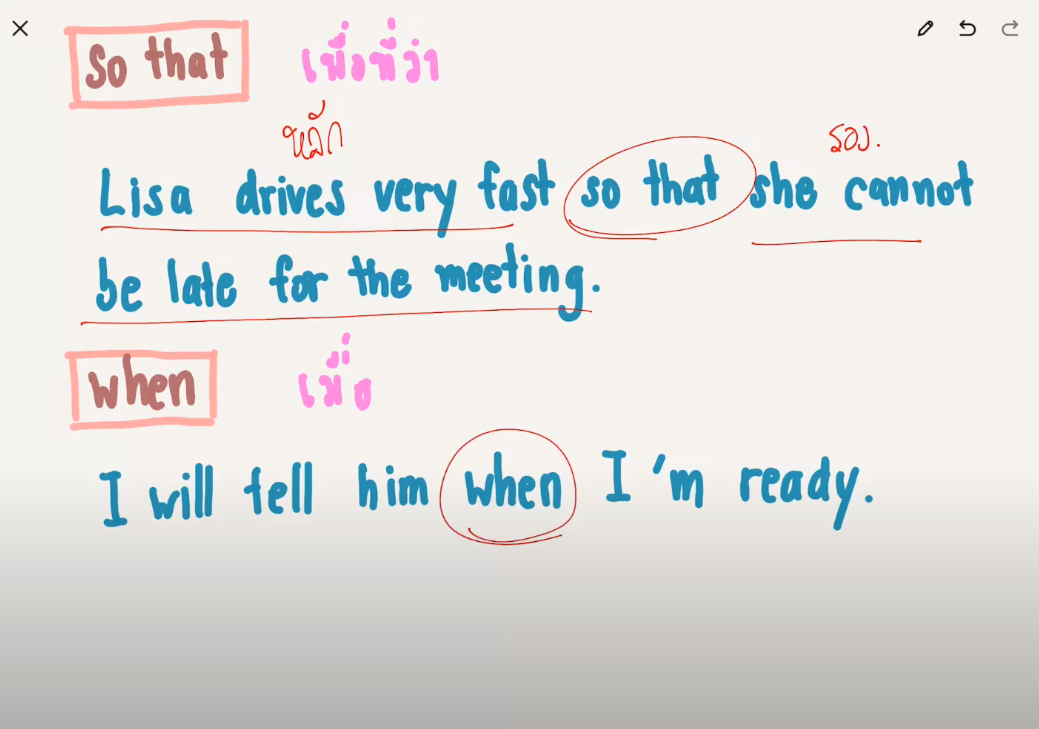 So that เพื่อที่ว่า
หลัก รอง.
Lisa drives very fast so that she cannot
be late for the meeting.
when เมื่อ
I will tell him when I'm ready.